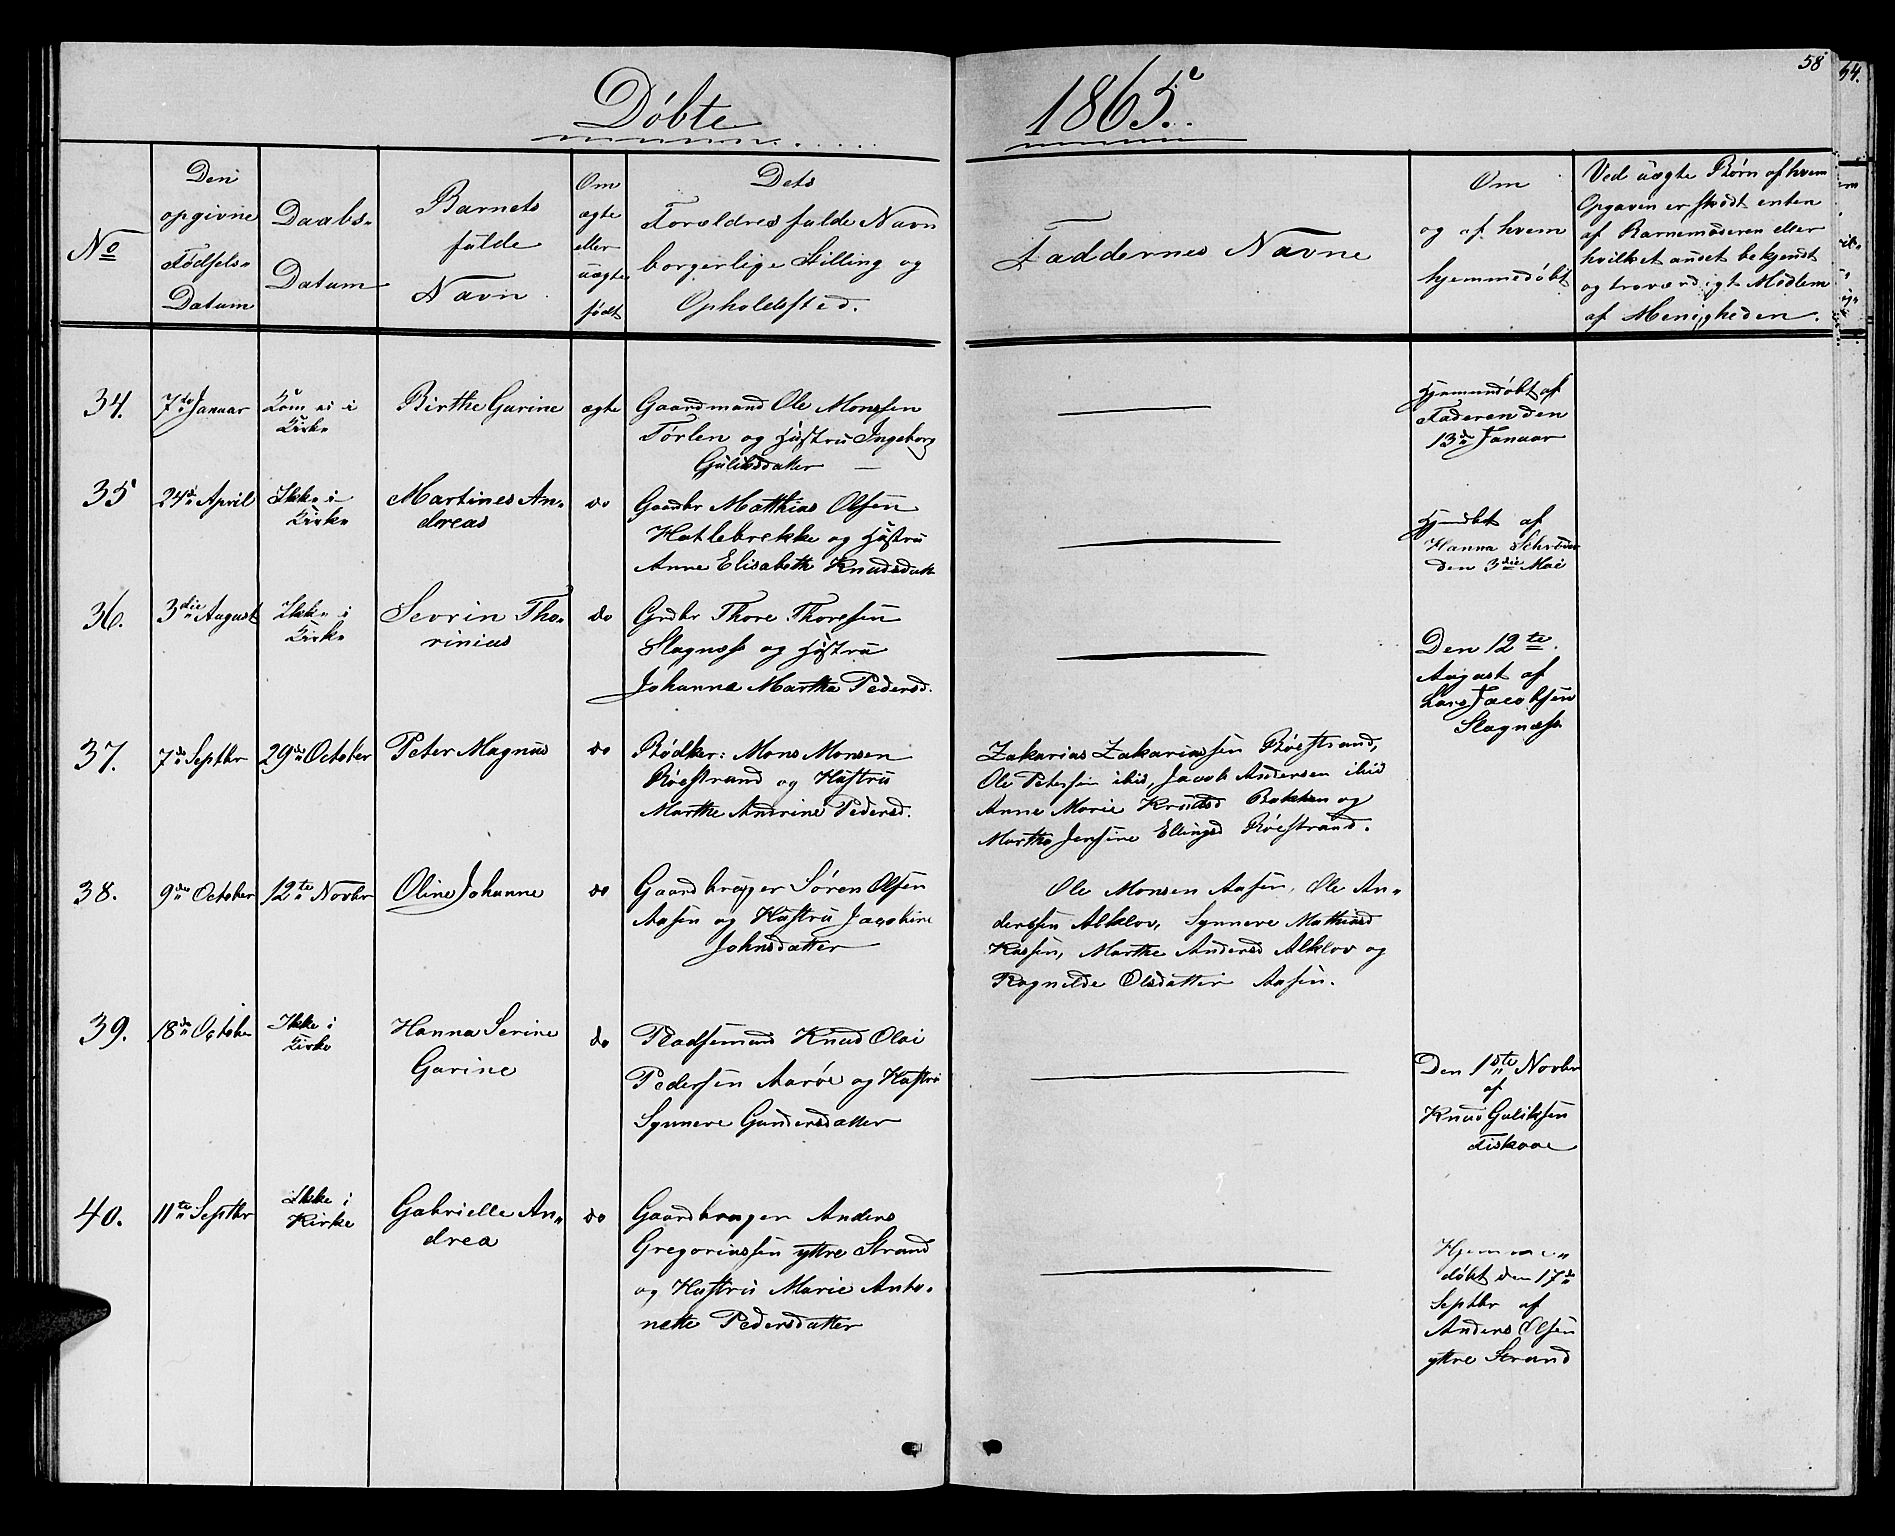 58
54.
Døbte
1865.
No
Den
opgivne
Fødsels-
Datum
Daabs-
Datum
Barnets
fulde
Navn.
Om
ægte
eller
uægte
født
Dets
Forældres fulde Navn
borgerlige Stilling og
Opholdssted.
Faddernes Navne
Om
og af hvem
hjemmedøbt
Ved uægte Børn af hvem
Opgaven er skedt enten
af Barnemoderen eller
hvilket andet bekjendt
og troværdigt Medlem
af Menigheden.
34.
7de Januar
Kom ei i
Kirke
Birthe Gurine
ægte
Gaardmand Ole Monssen
Førlen og Hustru Ingeborg
Guliksdatter
Hjemmedøbt af
Faderen den
13de Januar
35
24de April
Ikke i
Kirke
Martines An-
dreas
do
Gaardbr Matthias Olsen
Hatlebrekke og Hustru
Anne Elisabeth Knudsdatt
Hjmdbt af
Hanna Schrøder
den 3die Mai
36.
3die August
Ikke i
Kirke
Sevrin Tho-
rinius
do
Grdbr Thore Thoresen
Slagnæss og Hustru
Johanna Martha Pedersd.
Den 12te
August af
Lars Jacobsen
Slagnæss
37.
7de Septbr
29de October
Peter Magnus
do
Bødker: Mons Monsen
Røestrand og Hustru
Marthe Andrine Pedersd.
Zakarias Zakariassen Røestrand,
Ole Petersen ibid, Jacob Andersen ibid
Anne Marie Knudsd Bakken og
Martha Jensine Ellingsd Røestrand.
38.
9de October
12te Novbr
Oline Johanne
do
Gaardbruger Søren Olsen
Aasen og Hustru Jacobine
Johnsdatter
Ole Monsen Aasen, Ole An-
derssen Alklov, Synneve Mathiasd
Kassen, Marthe Andersd Alklov og
Ragnilde Olsdatter Aasen.
39.
18de October
Ikke i
Kirke
Hanna Serine
Garine
do
Pladsemand Knud Olai
Pedersen Aarøe og Hustru
Synneve Gundersdatter
Den 1ste Novbr
af
Knud Guliksen
Fiskaae
40.
11te Septbr
Ikke i
Kirke
Gabrielle An-
drea
do
Gaardbruger Anders
Gregoriussen yttre Strand
og Hustru Marie Anto-
nette Pedersdatter
Hjemme-
døbt den 17de
Septbr af
Anders Olsen
yttre Strand